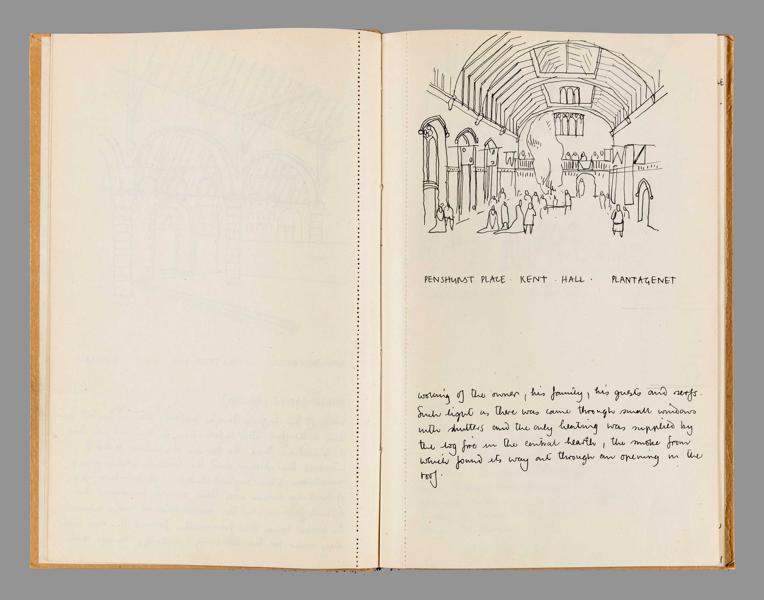 PENSHURST PLACE · KENT · HALL · PLANTAGENET
working of the owner, his family, his guests and serfs.
Such light as there was came through small windows
with shutters and the only heating was supplied by
the log fire in the central hearth, the smoke from
which found its way out through an opening in the
roof.